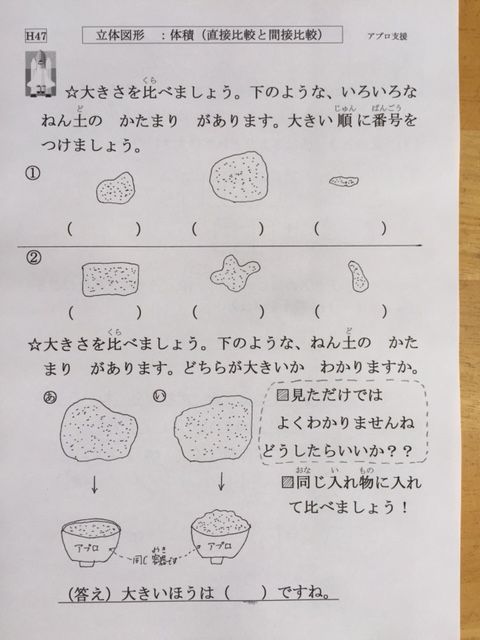 H47 立体図形 :体積(直接比較と間接比較) アプロ支援
くら
☆大きさを比べましょう。下のような、いろいろな
ど じゅん ばんごう
ねん土の かたまり があります。大きい順に番号を
つけましょう。
①
( ) ( ) ( )
②
( ) ( ) ( )
くら ど
☆大きさを比べましょう。下のような、ねん土の かた
まり があります。どちらが大きいか わかりますか。
あ い
▨見ただけでは
よくわかりませんね
どうしたらいいか??
おな い もの
▨同じ入れ物に入れ
て比べましょう!
アプロ アプロ
(答え)大きいほうは( )ですね。